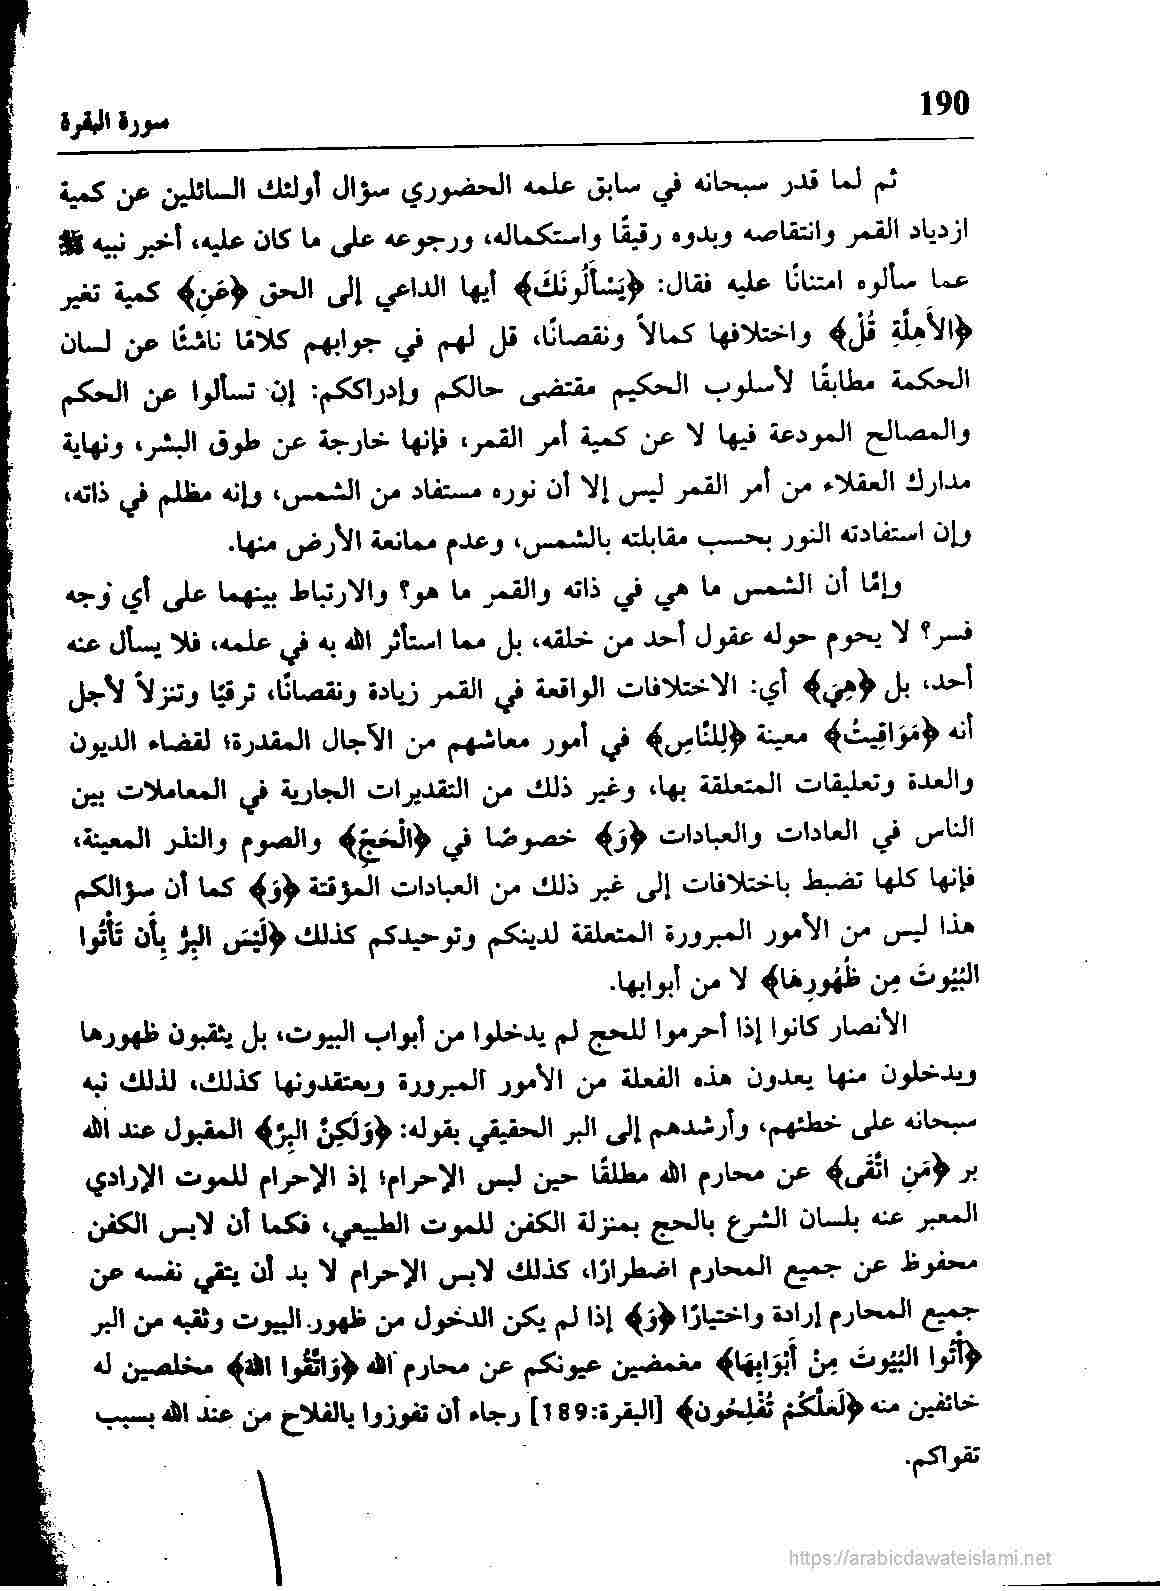 190
سورة البقرة
ثم لما قدر سبحانه في سابق علمه الحضوري سؤال أولئك السائلين عن كمية
ازدياد القمر وانتقاصه وبدوه رقيقًا واستكماله، ورجوعه على ما كان عليه، أخبر نبيه ﷺ
عما سألوه امتنانًا عليه فقال: ﴿يَسْأَلُونَكَ﴾ أيها الداعي إلى الحق ﴿عَنِ﴾ كمية تغير
﴿الأَهِلَّةِ قُلْ﴾ واختلافها كمالاً ونقصانًا، قل لهم في جوابهم كلامًا ناشئًا عن لسان
الحكمة مطابقًا لأسلوب الحكيم مقتضى حالكم وإدراككم: إن تسألوا عن الحكم
والمصالح المودعة فيها لا عن كمية أمر القمر، فإنها خارجة عن طوق البشر، ونهاية
مدارك العقلاء من أمر القمر ليس إلا أن نوره مستفاد من الشمس، وإنه مظلم في ذاته،
وإن استفادته النور بحسب مقابلته بالشمس، وعدم ممانعة الأرض منها.
وإمَّا أن الشمس ما هي في ذاته والقمر ما هو؟ والارتباط بينهما على أي وجه
فسر؟ لا يحوم حوله عقول أحد من خلقه، بل مما استأثر الله به في علمه، فلا يسأل عنه
أحد، بل ﴿هِيَ﴾ أي: الاختلافات الواقعة في القمر زيادة ونقصانًا، ترقيًا وتنزلاً لأجل
أنه ﴿مَوَاقِيتُ﴾ معينة ﴿لِلنَّاسِ﴾ في أمور معاشهم من الآجال المقدرة؛ لقضاء الديون
والعدة وتعليقات المتعلقة بها، وغير ذلك من التقديرات الجارية في المعاملات بين
الناس في العادات والعبادات ﴿وَ﴾ خصوصًا في ﴿الْحَجِّ﴾ والصوم والنذر المعينة،
فإنها كلها تضبط باختلافات إلى غير ذلك من العبادات المؤقتة ﴿وَ﴾ كما أن سؤالكم
هذا ليس من الأمور المبرورة المتعلقة لدينكم وتوحيدكم كذلك ﴿لَيْسَ البِرُّ بِأَن تَأْتُوا
البُيُوتَ مِن ظُهُورِهَا﴾ لا من أبوابها.
الأنصار كانوا إذا أحرموا للحج لم يدخلوا من أبواب البيوت، بل يثقبون ظهورها
ويدخلون منها يعدون هذه الفعلة من الأمور المبرورة ويعتقدونها كذلك، لذلك نبه
سبحانه على خطئهم، وأرشدهم إلى البر الحقيقي بقوله: ﴿وَلَكِنَّ البِرَّ﴾ المقبول عند الله
بر ﴿مَنِ اتَّقَى﴾ عن محارم الله مطلقًا حين لبس الإحرام؛ إذ الإحرام للموت الإرادي
المعبر عنه بلسان الشرع بالحج بمنزلة الكفن للموت الطبيعي، فكما أن لابس الكفن
محفوظ عن جميع المحارم اضطرارًا، كذلك لابس الإحرام لا بد أن يتقي نفسه عن
جميع المحارم إرادة واختيارًا ﴿وَ﴾ إذا لم يكن الدخول من ظهور البيوت وثقبه من البر
﴿أْتُوا البُيُوتَ مِنْ أَبْوَابِهَا﴾ مغمضين عيونكم عن محارم الله ﴿وَاتَّقُوا اللهَ﴾ مخلصين له
خائفين منه ﴿لَعَلَّكُمْ تُفْلِحُون﴾ [البقرة:189] رجاء أن تفوزوا بالفلاح من عند الله بسبب
تقواكم.
https://arabicdawateislami.net